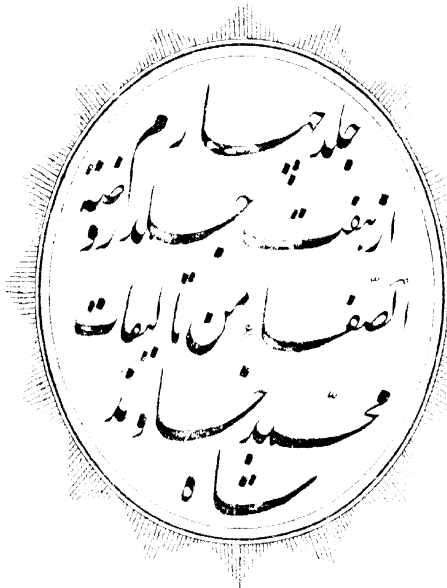 جلد چهارم
از هفت جلد روضة
الصّفاء من تالیفات
محمّد خاوند
شاه